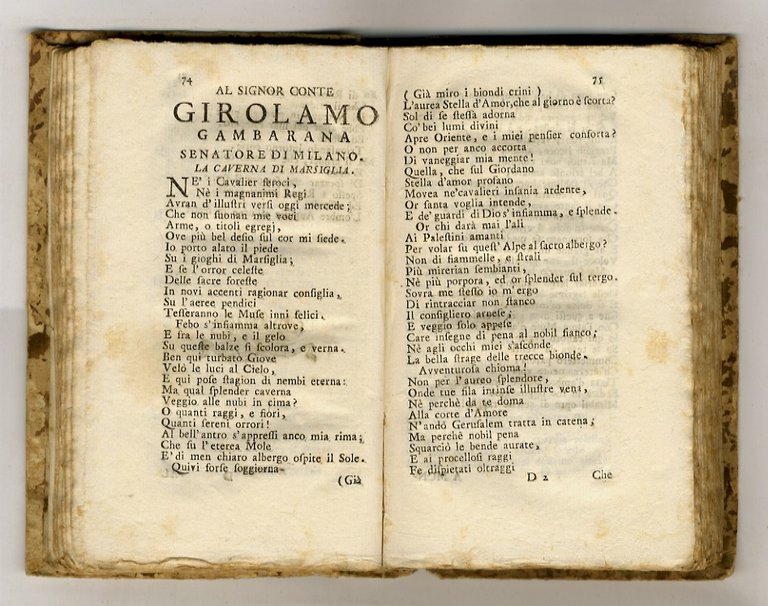 74
AL SIGNOR CONTE
GIROLAMO
GAMBARANA
SENATORE DI MILANO.
LA CAVERNA DI MARSIGLIA.
NE' i Cavalier feroci,
Nè i magnanimi Regi
Avran d'illuſtri verſi oggi mercede;
Che non ſuonan mie voci
Arme, o titoli egregj,
Ove più bel deſio ſul cor mi ſiede.
Io porto alato il piede
Su i gioghi di Marſiglia;
E ſe l'orror celeſte
Delle ſacre foreſte
In novi accenti ragionar conſiglia,
Su l'aeree pendici
Teſſeranno le Muſe inni felici.
Febo s'infiamma altrove,
E fra le nubi, e il gelo
Su queſte balze ſi ſcolora, e verna.
Ben qui turbato Giove
Velò le luci al Cielo,
E qui poſe ſtagion di nembi eterna:
Ma qual ſplender caverna
Veggio alle nubi in cima?
O quanti raggi, e fiori,
Quanti ſereni orrori!
Al bell'antro s'appreſſi anco mia rima;
Che ſu l'eterea Mole
E' di men chiaro albergo oſpite il Sole.
Quivi forſe ſoggiorna
(Già
75
(Già miro i biondi crini)
L'aurea Stella d'Amor, che al giorno è ſcorta?
Sol di ſe ſteſſa adorna
Co' bei lumi divini
Apre Oriente, e i miei penſier conforta?
O non per anco accorta
Di vaneggiar mia mente!
Quella, che ſul Giordano
Stella d'amor profano
Movea ne'cavalieri inſania ardente,
Or ſanta voglia intende,
E de' guardi di Dio s'infiamma, e ſplende.
Or chi darà mai l'ali
Ai Paleſtini amanti
Per volar ſu queſt'Alpe al ſacro albergo?
Non di fiammelle, e ſtrali
Più mirerian ſembianti,
Nè più porpora, ed or ſplender ſul tergo.
Sovra me ſteſſo io m'ergo
Di rintracciar non ſtanco
Il conſigliero arneſe;
E veggio ſolo appeſe
Care inſegne di pena al nobil fianco;
Nè agli occhi miei s'aſconde
La bella ſtrage delle trecce bionde.
Avventuroſa chioma!
Non per l'aureo ſplendore,
Onde tue fila intinſe illuſtre vena,
Nè perchè da te doma
Alla corte d'Amore
N'andò Geruſalem tratta in catena;
Ma perchè nobil pena
Squarciò le bende aurate,
E ai procelloſi raggi
Fe diſpietati oltraggi
D 2
Che